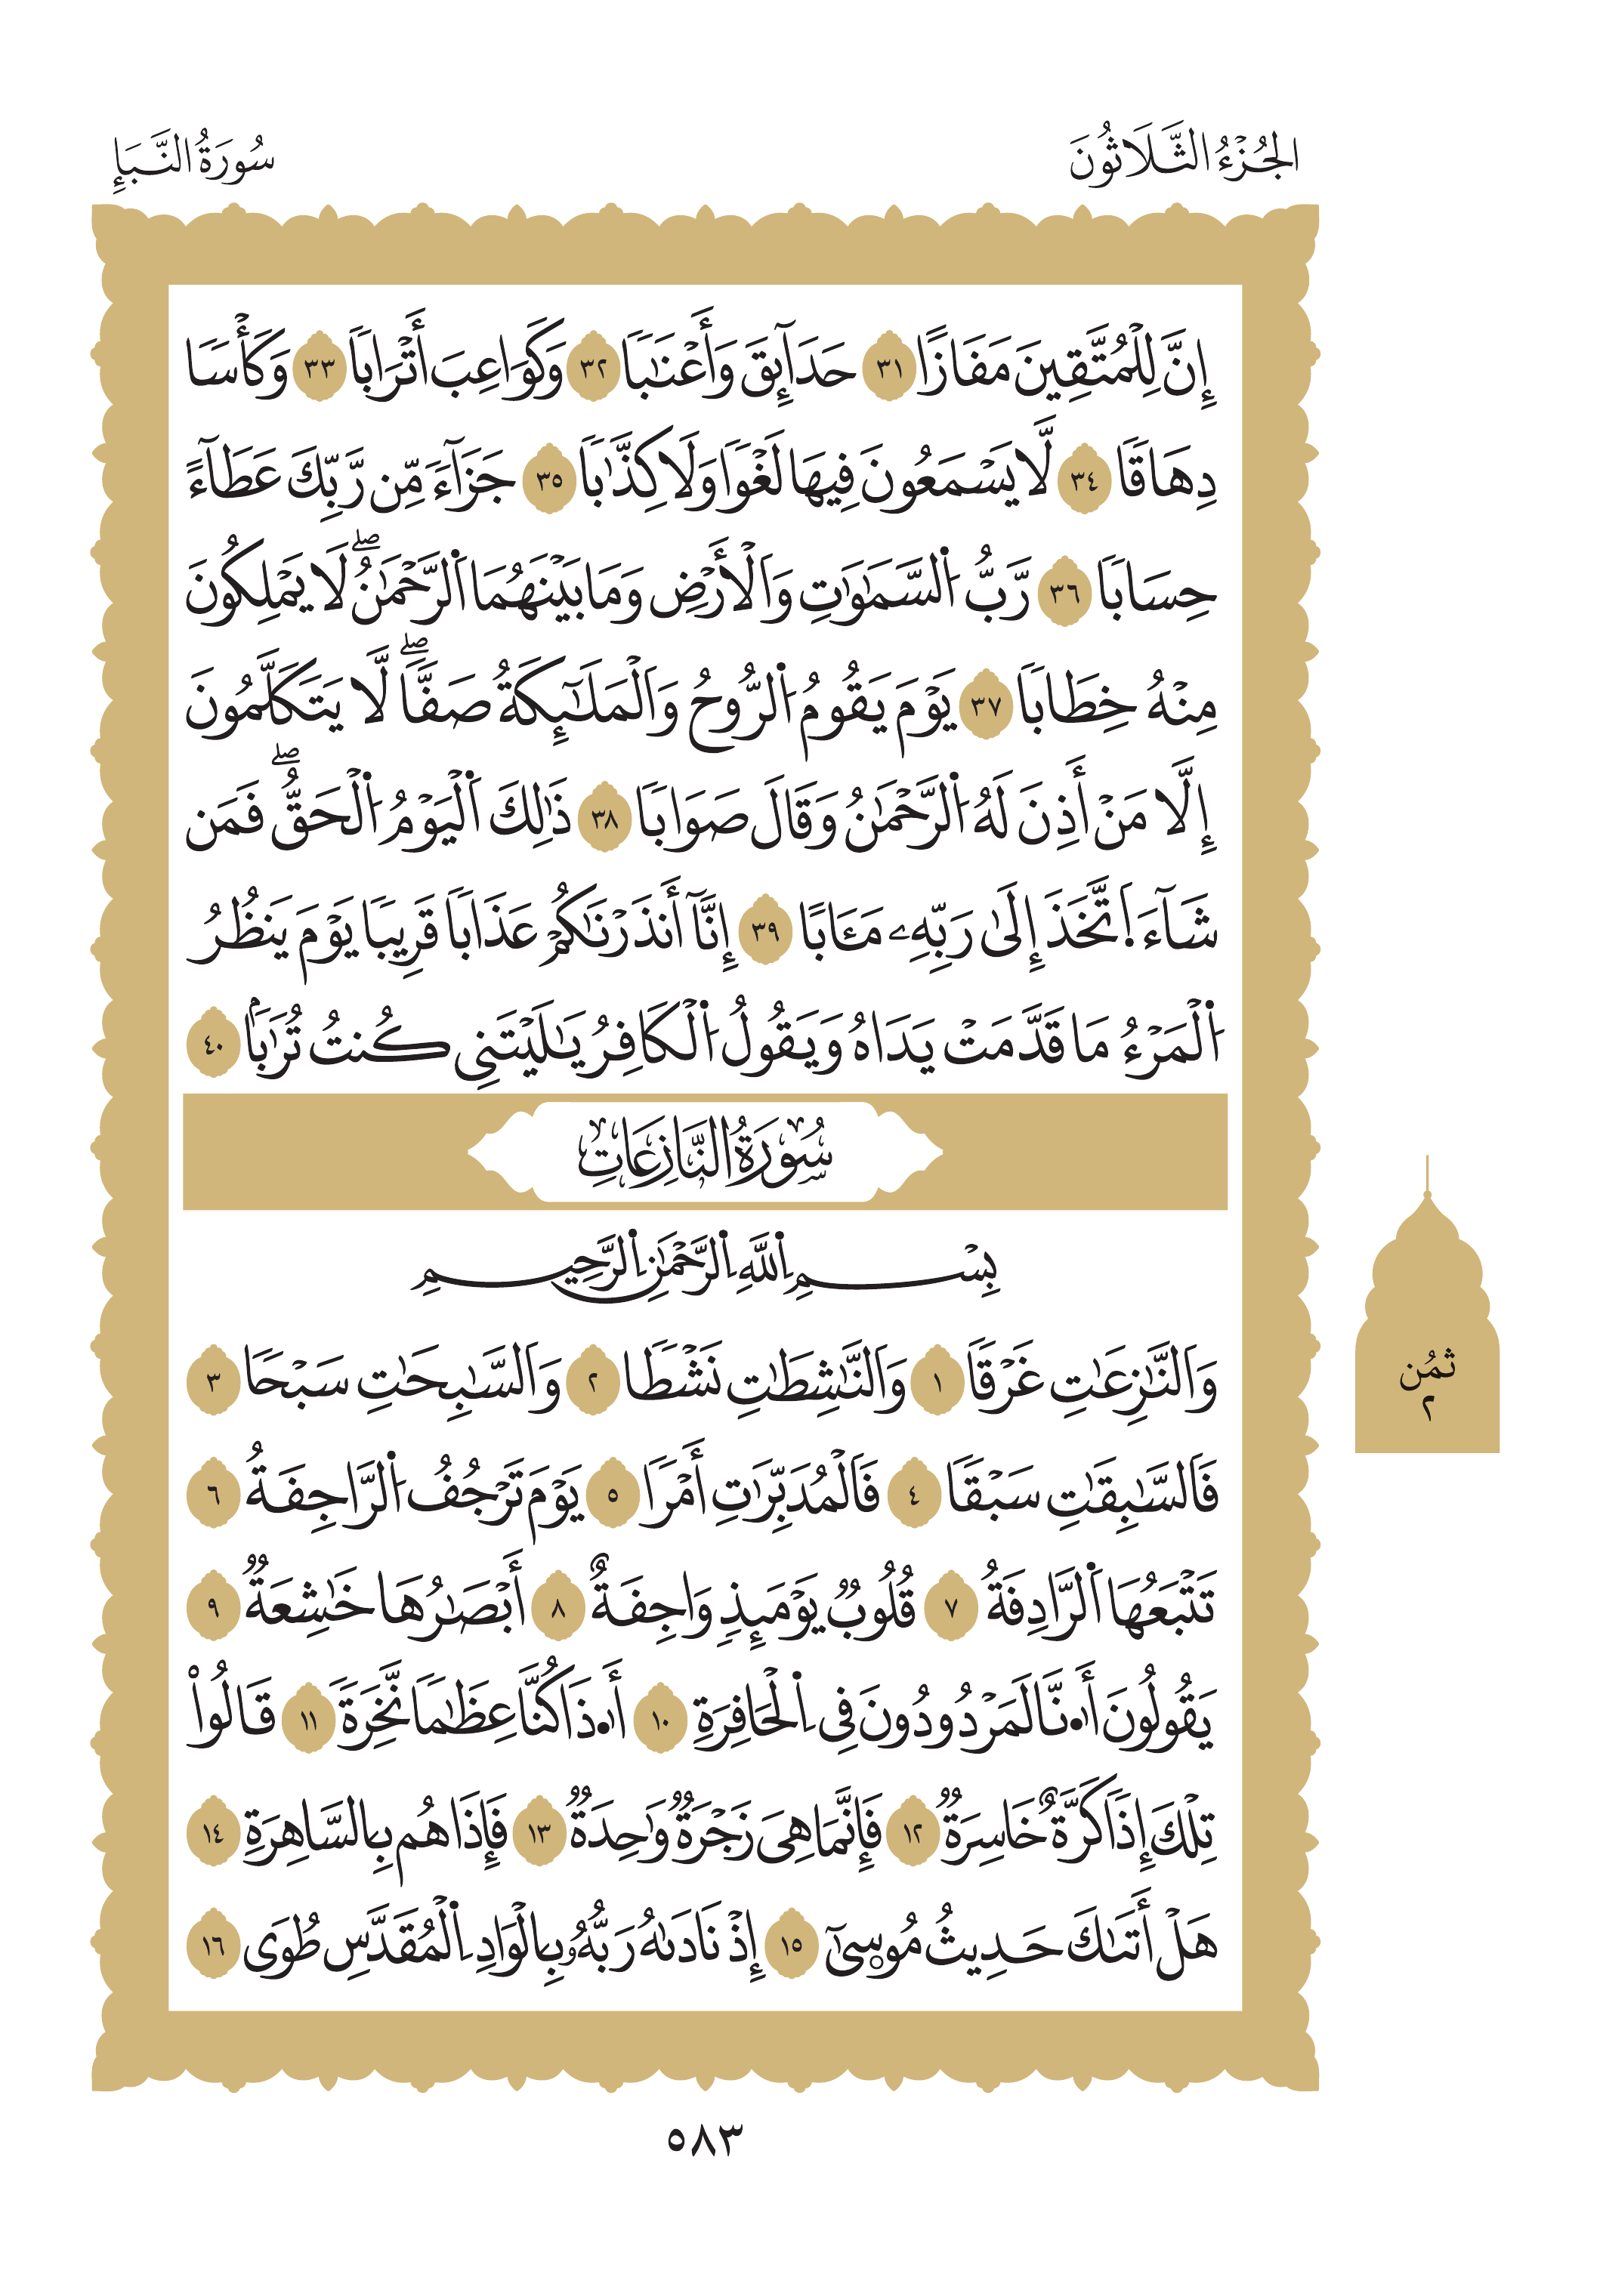 الجُزْءُ الثَّلَاثُونَ
سُورَةُ النَّبَإِ
إِنَّ لِلْمُتَّقِينَ مَفَازًا ٣١ حَدَآئِقَ وَأَعْنَٰبًا ٣٢ وَكَوَاعِبَ أَتْرَابًا ٣٣ وَكَأْسًا
دِهَاقًا ٣٤ لَّا يَسْمَعُونَ فِيهَا لَغْوًا وَلَا كِذَّٰبًا ٣٥ جَزَآءً مِّن رَّبِّكَ عَطَآءً
حِسَابًا ٣٦ رَّبُّ اَ۬لسَّمَٰوَٰتِ وَاَلْأَرْضِ وَمَا بَيْنَهُمَا اَ۬لرَّحْمَٰنُۖ لَا يَمْلِكُونَ
مِنْهُ خِطَابًا ٣٧ يَوْمَ يَقُومُ اُ۬لرُّوحُ وَاَلْمَلَٰٓئِكَةُ صَفًّاۖ لَّا يَتَكَلَّمُونَ
إِلَّا مَنْ أَذِنَ لَهُ اُ۬لرَّحْمَٰنُ وَقَالَ صَوَابًا ٣٨ ذَٰلِكَ اَ۬لْيَوْمُ اُ۬لْحَقُّۖ فَمَن
شَآءَ اَ۪تَّخَذَ إِلَىٰ رَبِّهِۦ مَـَٔابًا ٣٩ إِنَّآ أَنذَرْنَٰكُمْ عَذَابًا قَرِيبًا يَوْمَ يَنظُرُ
اُ۬لْمَرْءُ مَا قَدَّمَتْ يَدَاهُ وَيَقُولُ اُ۬لْكَافِرُ يَٰلَيْتَنِي كُنتُ تُرَٰبًۢا ٤٠
سُورَةُ النَّازِعَاتِ
بِسْمِ اِ۬للَّهِ اِ۬لرَّحْمَٰنِ اِ۬لرَّحِيمِ
وَاَلنَّٰزِعَٰتِ غَرْقًا ١ وَاَلنَّٰشِطَٰتِ نَشْطًا ٢ وَاَلسَّٰبِحَٰتِ سَبْحًا ٣
فَاَلسَّٰبِقَٰتِ سَبْقًا ٤ فَاَلْمُدَبِّرَٰتِ أَمْرًا ٥ يَوْمَ تَرْجُفُ اُ۬لرَّاجِفَةُ ٦
تَتْبَعُهَا اَ۬لرَّادِفَةُ ٧ قُلُوبٌ يَوْمَئِذٍ وَاجِفَةٌ ٨ أَبْصَٰرُهَا خَٰشِعَةٌ ٩
يَقُولُونَ أَا۟۬نَّا لَمَرْدُودُونَ فِي اِ۬لْحَافِرَةِ ١٠ أَا۟۬ذَا كُنَّا عِظَٰمًا نَّخِرَةً ١١ قَالُواْ
تِلْكَ إِذًا كَرَّةٌ خَاسِرَةٌ ١٢ فَإِنَّمَا هِيَ زَجْرَةٌ وَٰحِدَةٌ ١٣ فَإِذَا هُم بِالسَّاهِرَةِ ١٤
هَلْ أَتَىٰكَ حَدِيثُ مُوسِيٰٓ ١٥ إِذْ نَادَىٰهُ رَبُّهُۥ بِالْوَادِ اِ۬لْمُقَدَّسِ طُوَى ١٦
ثُمُن
٢
٥٨٣